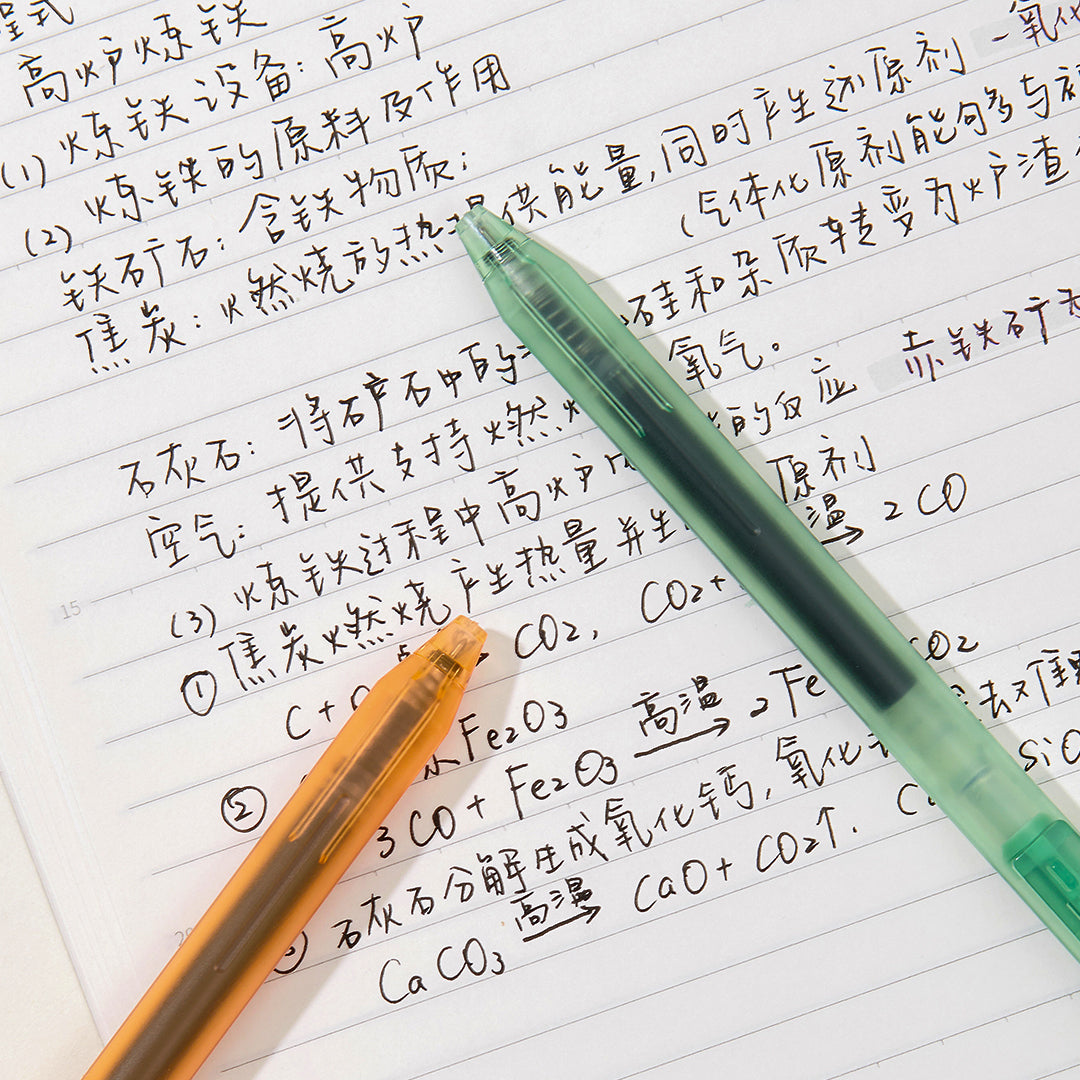 程式
高炉炼铁
(1) 炼铁设备：高炉
(2) 炼铁的原料及作用
铁矿石：含铁物质；
焦炭：燃烧放热提供能量，同时产生还原剂 一氧化
(气体化原剂能够与
石灰石：将矿石中的 硅和杂质转变为炉渣
空气：提供支持燃烧 氧气。
(3) 炼铁过程中高炉 的反应 赤铁矿
① 焦炭燃烧产生热量并生 原剂
C + CO2, CO2 + 高温→ 2CO
② Fe2O3
3CO + Fe2O3 高温→ 2Fe CO2
石灰石分解生成氧化钙，氧化 去
CaCO3 高温→ CaO + CO2↑. SiO
15